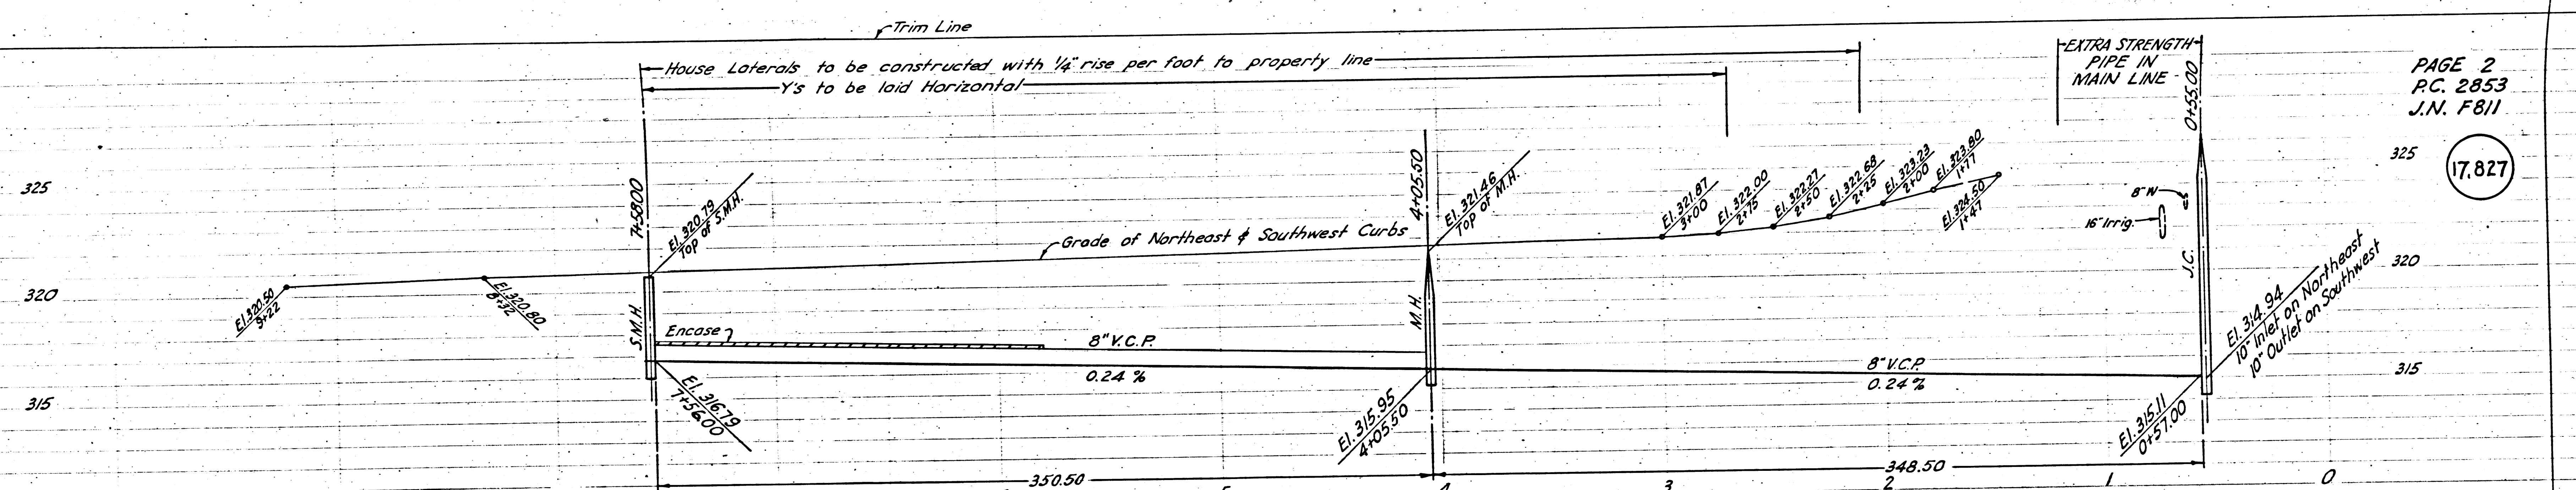 Trim Line
House Laterals to be constructed with 1/4" rise per foot to property line
Y's to be laid Horizontal
EXTRA STRENGTH
PIPE IN
MAIN LINE
0+55.00
PAGE 2
P.C. 2853
J.N. F811
17,827
325
325
7+58.00
El. 320.79
Top of S.M.H.
4+05.50
El. 321.46
Top of M.H.
El. 321.87
3+00
El. 322.00
2+75
El. 322.27
2+50
El. 322.68
2+25
El. 323.23
2+00
El. 323.80
1+77
El. 324.50
1+47
8" W
16" Irrig.
Grade of Northeast & Southwest Curbs
320
320
El. 320.50
9+22
El. 320.80
8+32
S.M.H.
Encase
8" V.C.P.
0.24 %
M.H.
8" V.C.P.
0.24 %
J.C.
El. 314.94
10" Inlet on Northeast
10" Outlet on Southwest
315
315
El. 316.79
7+56.00
El. 315.95
4+05.50
El. 315.11
0+57.00
350.50
348.50
5
4
3
2
1
0